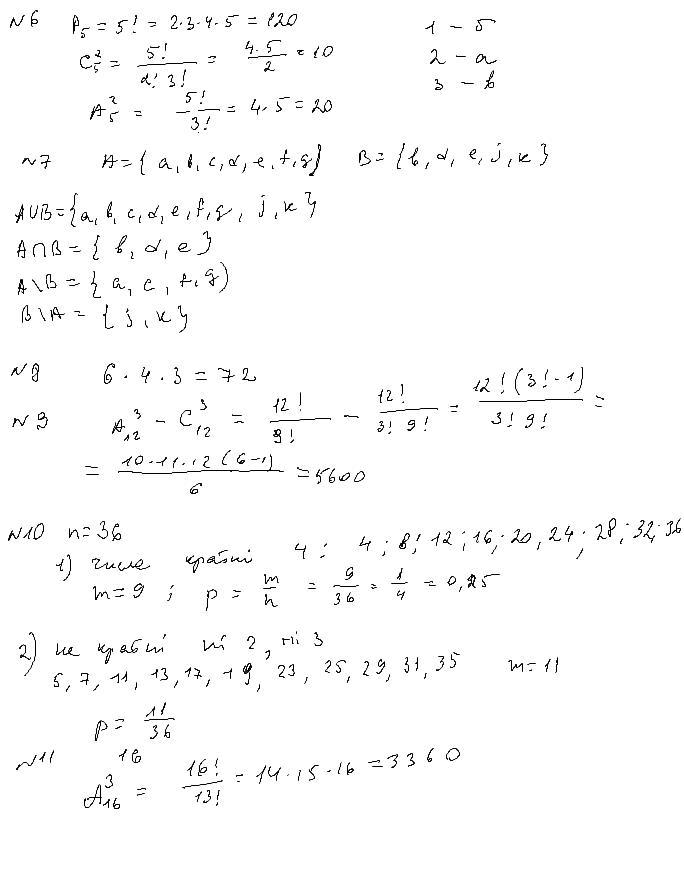 N6 P₅ = 5! = 2·3·4·5 = 120
1 – б
C₅² = 5!/(2! 3!) = 4·5/2 = 10
2 – а
3 – в
A₅² = 5!/3! = 4·5 = 20
N7 A = { a, b, c, d, e, f, g } B = { b, d, e, j, k }
A∪B = { a, b, c, d, e, f, g, j, k }
A∩B = { b, d, e }
A\B = { a, c, f, g )
B\A = { j, k }
N8 6·4·3 = 72
N9 A₁₂³ – C₁₂³ = 12!/9! – 12!/(3! 9!) = 12!(3!-1)/(3! 9!) =
= 10·11·12(6-1)/6 = 5600
N10 n=36
1) числа кратні 4: 4; 8; 12; 16; 20, 24; 28; 32; 36
m=9; p = m/n = 9/36 = 1/4 = 0,25
2) не кратні ні 2, ні 3
5, 7, 11, 13, 17, 19, 23, 25, 29, 31, 35 m=11
p = 11/36
N11 16
A₁₆³ = 16!/13! = 14·15·16 = 3360